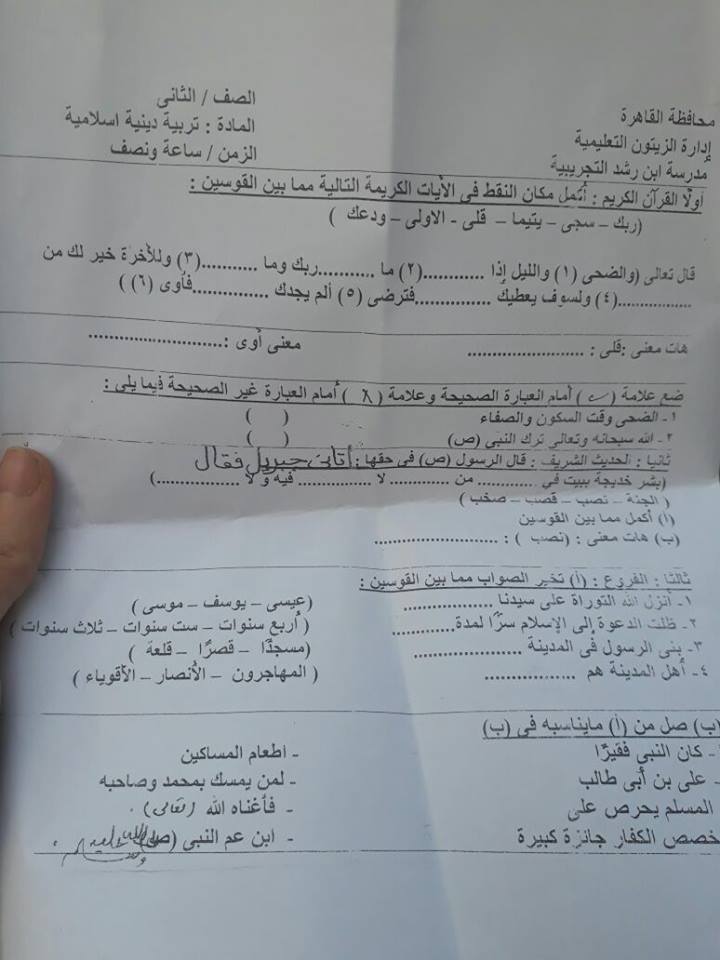 محافظة القاهرة
الصف / الثانى
إدارة الزيتون التعليمية
المادة : تربية دينية اسلامية
مدرسة ابن رشد التجريبية
الزمن / ساعة ونصف
أولًا القرآن الكريم : أكمل مكان النقط فى الأيات الكريمة التالية مما بين القوسين :
(ربك – سجى – يتيما – قلى - الاولى – ودعك )
قال تعالى (والضحى (١) والليل إذا ............(٢) ما ...........ربك وما ...........(٣) وللأخرة خير لك من
................(٤) ولسوف يعطيك .............فترضى (٥) ألم يجدك .............فأوى (٦) )
هات معنى :قلى : ........................ معنى أوى :.........................
ضع علامة (✓) أمام العبارة الصحيحة وعلامة (X) أمام العبارة غير الصحيحة فيما يلى :
١- الضحى وقت السكون والصفاء ( )
٢- الله سبحانه وتعالى ترك النبى (ص) ( )
ثانيا : الحديث الشريف : قال الرسول (ص) فى حقها : أتانى جبريل فقال
(بشر خديجة ببيت في ............ من ............ لا ............... فيه و لا ................)
( الجنة – نصب – قصب – صخب )
(أ) أكمل مما بين القوسين
(ب) هات معنى : (نصب ) : ..........................
ثالثا : الفروع : (أ) تخير الصواب مما بين القوسين :
١- أنزل الله التوراة على سيدنا ................... (عيسى – يوسف – موسى )
٢- ظلت الدعوة إلى الإسلام سرًا لمدة............. ( أربع سنوات – ست سنوات – ثلاث سنوات )
٣- بنى الرسول فى المدينة ....................... (مسجدًا – قصرًا – قلعة )
٤- أهل المدينة هم ................... ( المهاجرون – الأنصار – الأقوياء )
(ب) صل من (أ) مايناسبه فى (ب)
- كان النبى فقيرًا - اطعام المساكين
- على بن أبى طالب - لمن يمسك بمحمد وصاحبه
المسلم يحرص على - فأغناه الله (تعالى) .
خصص الكفار جائزة كبيرة - ابن عم النبى (ص)